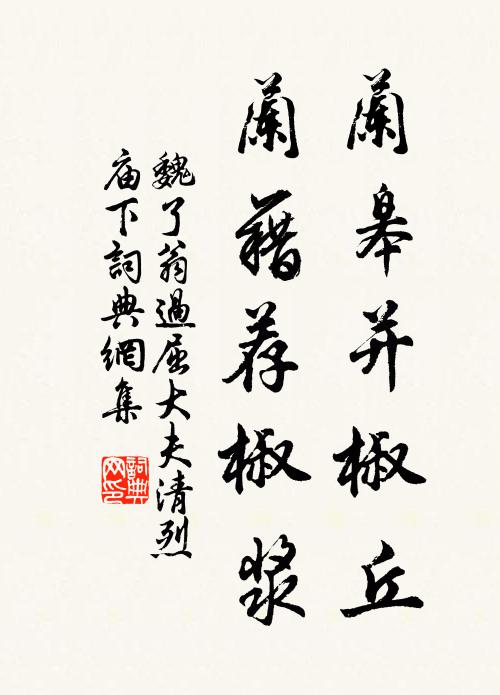 蘭皋并椒丘
蘭藉荐椒漿
魏了翁過屈大夫清烈
庙下詞典網集
詞典网印